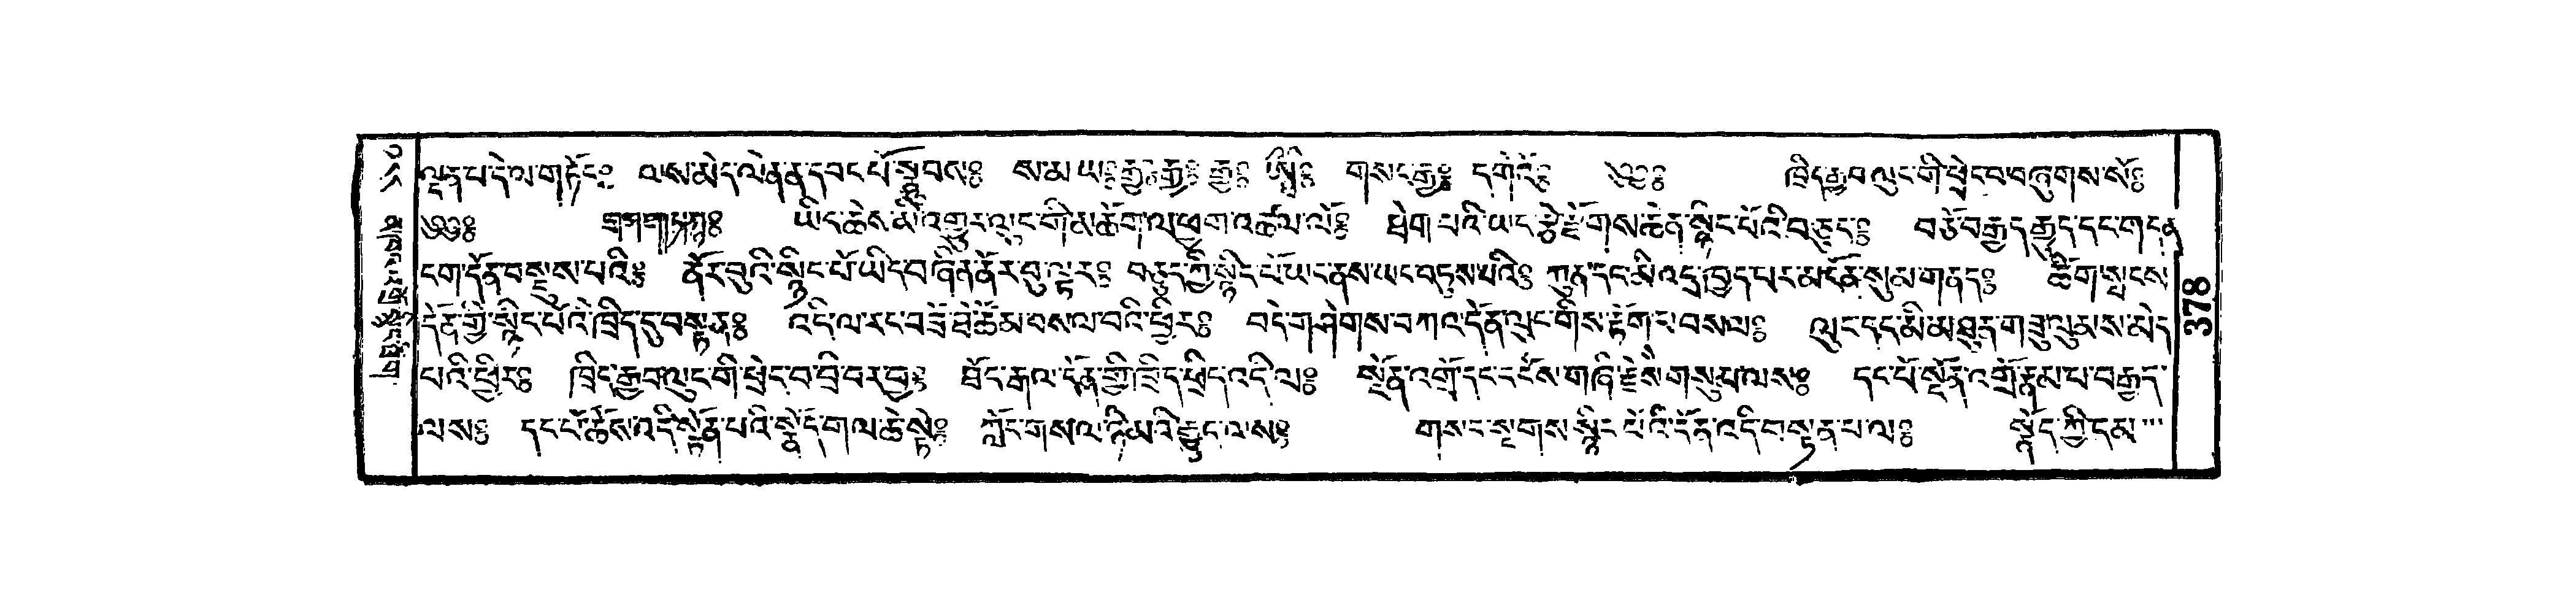 ལྡན་པ་དེ་ལ་གཏོང༔ ལས་མེད་ལེན་ན་དབང་པོ་སྣུབས༔ ས་མ་ཡ༔ རྒྱ༔ རྒྱ༔ རྒྱ༔ ཨི་ཐི༔ གསང་རྒྱ༔ དགེའོ༔ ༄༅༔ ཁྲིད་རྒྱབ་ལུང་གི་ཕྲེང་བ་བཞུགས་སོ༔
༄༅༔ ཡིད་ཆེས་མི་འགྱུར་ལུང་གི་མཆོག་ལ་ཕྱག་འཚལ་ལོ༔ ཐེག་པའི་ཡང་རྩེ་རྫོགས་ཆེན་སྙིང་པོའི་བཅུད༔ བཅོ་བརྒྱད་རྒྱུད་དང་གདན
ངག་དོན་བསྡུས་པའི༔ ནོར་བུའི་སྙིང་པོ་ཡིད་བཞིན་ནོར་བུ་ལྟར༔ བཅུད་ཀྱི་སྙིང་པོ་ཡང་ནས་ཡང་བཏུས་པའི༔ ཀུན་དང་མི་འདྲ་ཁྱད་པར་མངོན་སུམ་གནད༔ ཚིག་སྤངས་
དོན་གྱི་སྙིང་པོའི་ཁྲིད་དུ་བསྟན༔ འདི་ལ་རང་བཟོ་ཐེ་ཚོམ་བསལ་བའི་ཕྱིར༔ བདེ་གཤེགས་བཀའ་དོན་ལུང་གིས་རྟོག་པ་བསལ༔ ལུང་དང་མི་མཐུན་གཟུ་ལུམས་མེད་
པའི་ཕྱིར༔ ཁྲིད་རྒྱབ་ལུང་གི་ཕྲེང་བ་བྲི་བར་བྱ༔ ཐོད་རྒལ་དོན་གྱི་ཁྲིད་འདི་ལ༔ སྔོན་འགྲོ་དང་དངོས་གཞི་རྗེས་གསུམ་ལས༔ དང་པོ་སྔོན་འགྲོ་རྣམ་པ་བརྒྱད་
ལས༔ དང་པོ་ཆོས་འདི་སྟོན་པའི་སྣོད་གལ་ཆེ་སྟེ༔ ཀློང་གསལ་ཉི་མའི་རྒྱུད་ལས༔ གསང་སྔགས་སྙིང་པོའི་དོན་འདི་བསྟན་པ་ལ༔ སྣོད་ཀྱི་དམ་
873